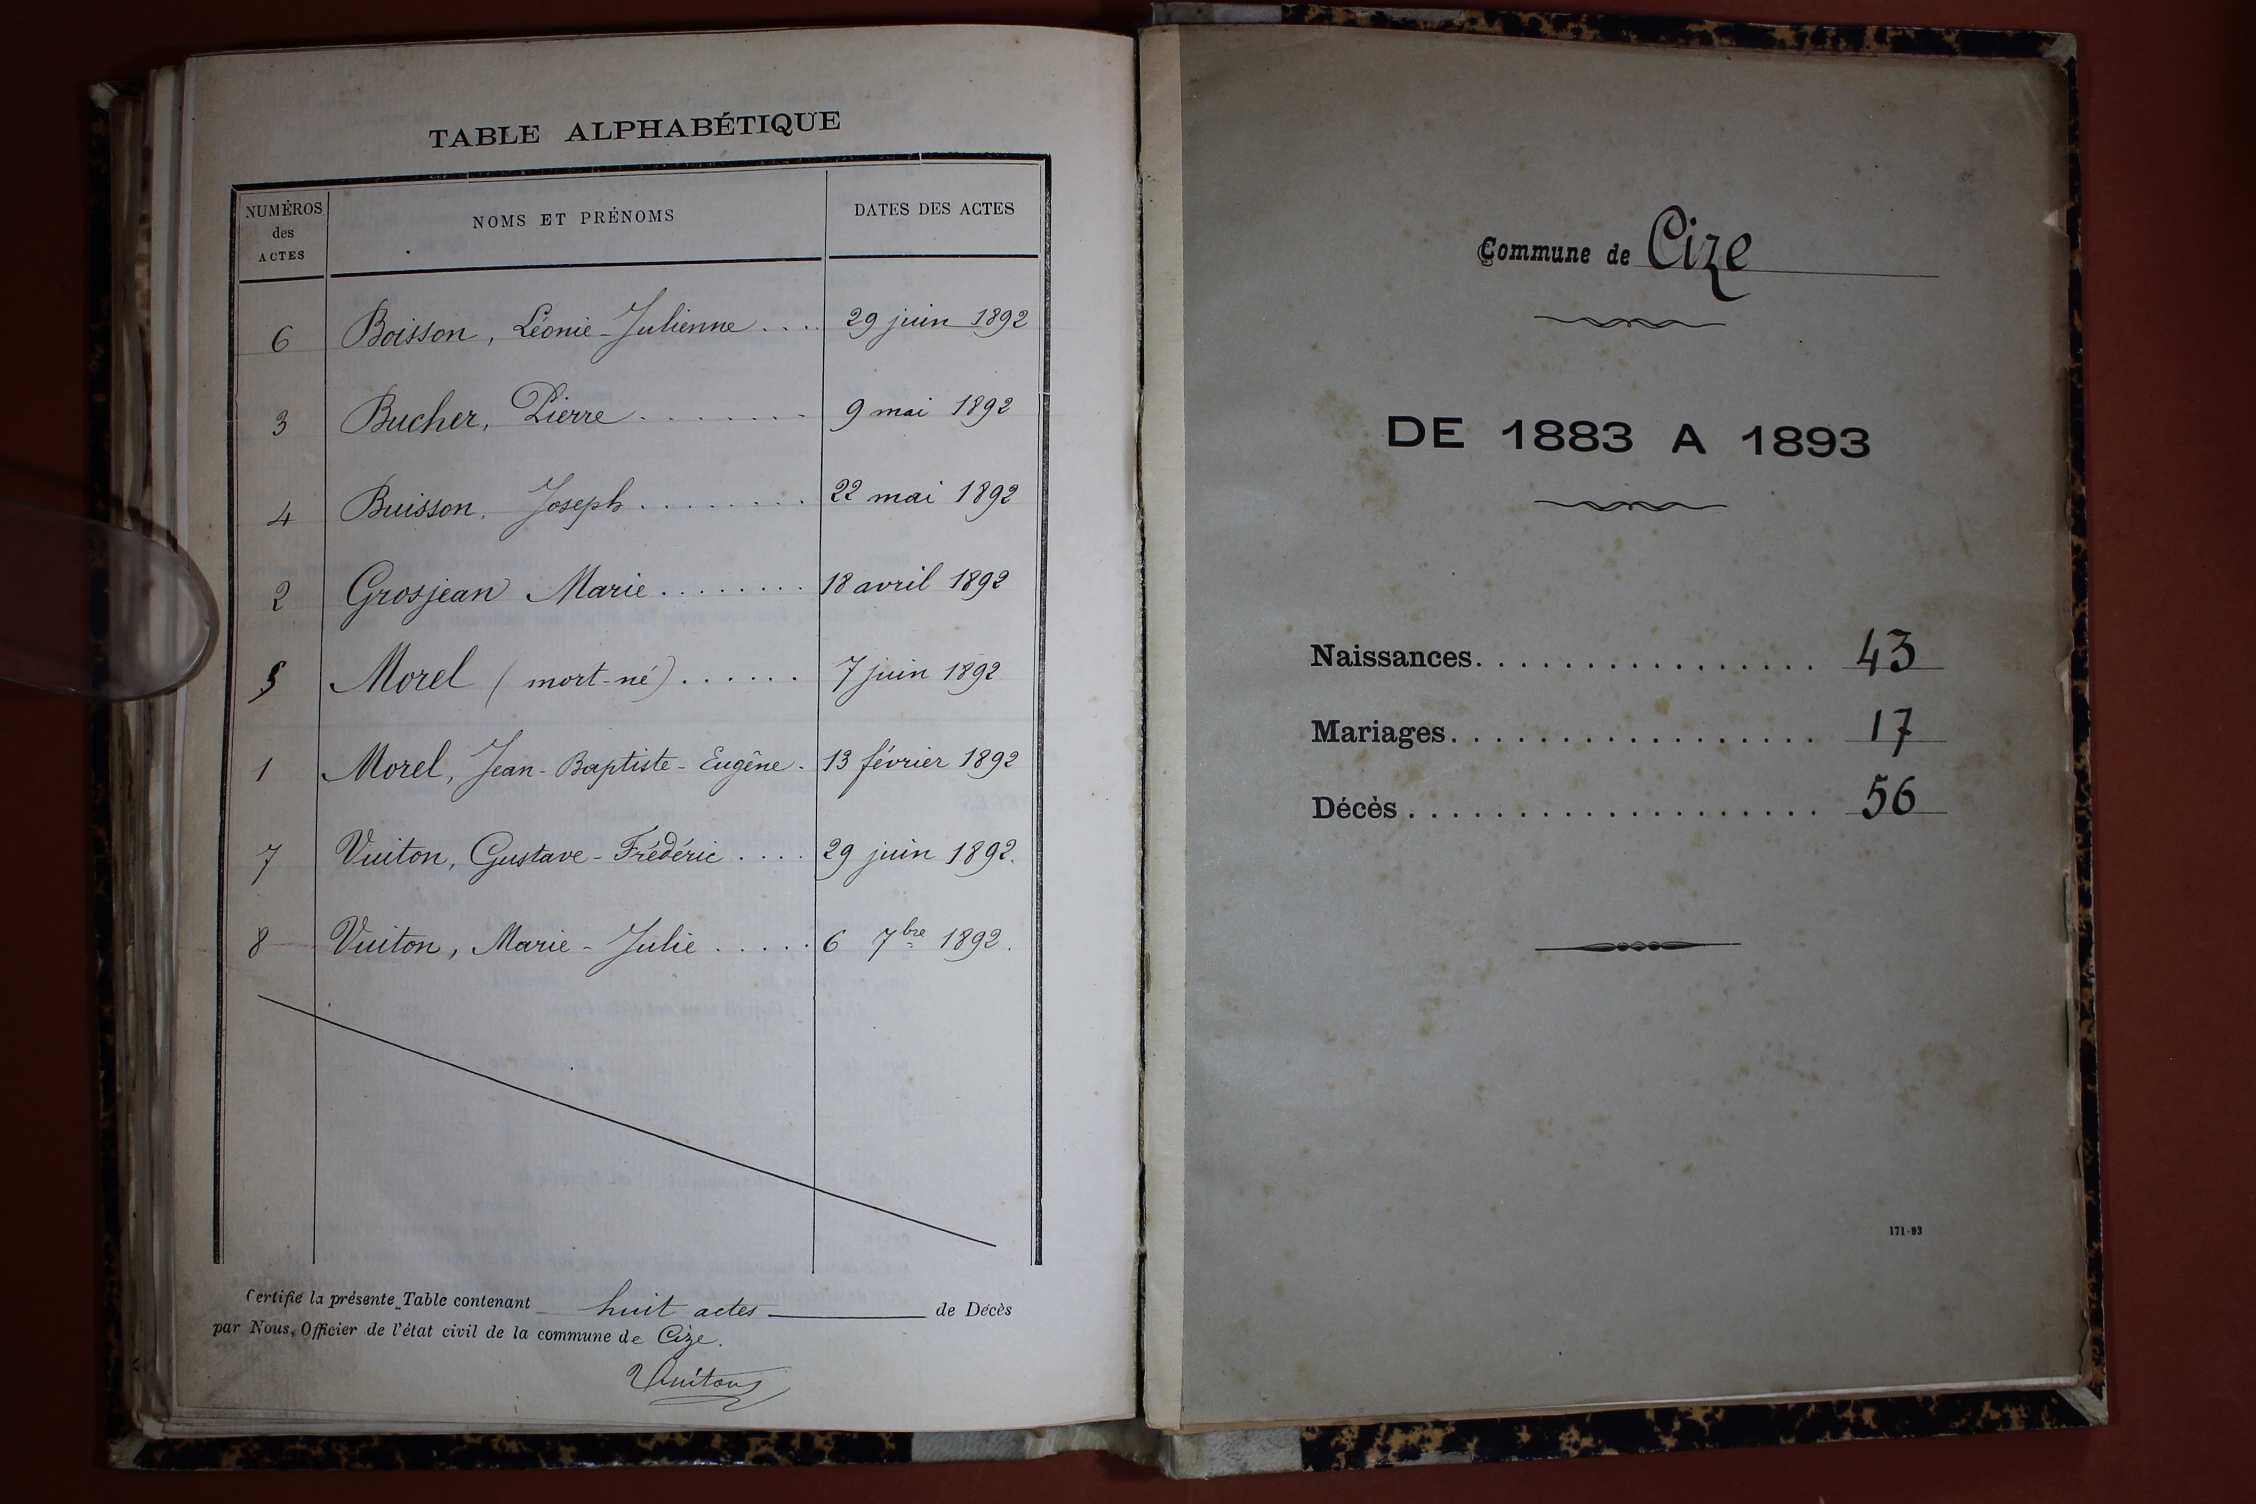 TABLE ALPHABÉTIQUE
NUMÉROS des ACTES NOMS ET PRÉNOMS DATES DES ACTES
6 Boisson, Léonie-Julienne .... 29 juin 1892
3 Bucher, Pierre ....... 9 mai 1892
4 Buisson, Joseph ........ 22 mai 1892
2 Grosjean Marie ........ 18 avril 1892
5 Morel (mort-né) ...... 7 juin 1892
1 Morel, Jean-Baptiste-Eugène. 13 février 1892
7 Vuiton, Gustave-Frédéric .... 29 juin 1892.
8 Vuiton, Marie-Julie ..... 6 7bre 1892.
Certifié la présente Table contenant huit actes de Décès
par Nous, Officier de l'état civil de la commune de Cize.
Vuiton
Commune de Cize
DE 1883 A 1893
Naissances. . . . . . . . . . . . . . . . 43
Mariages. . . . . . . . . . . . . . . . . 17
Décès . . . . . . . . . . . . . . . . . . . 56
171-93